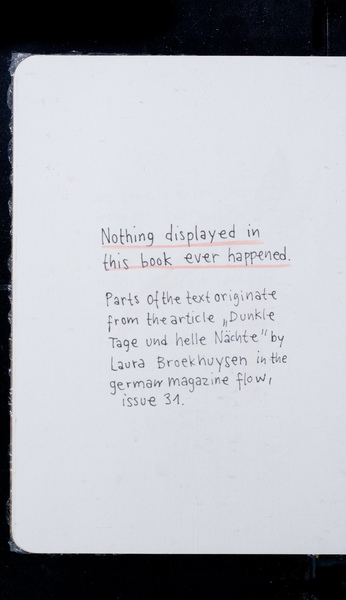 Nothing displayed in
this book ever happened.
Parts of the text originate
from the article „Dunkle
Tage und helle Nächte" by
Laura Broekhuysen in the
german magazine flow,
issue 31.